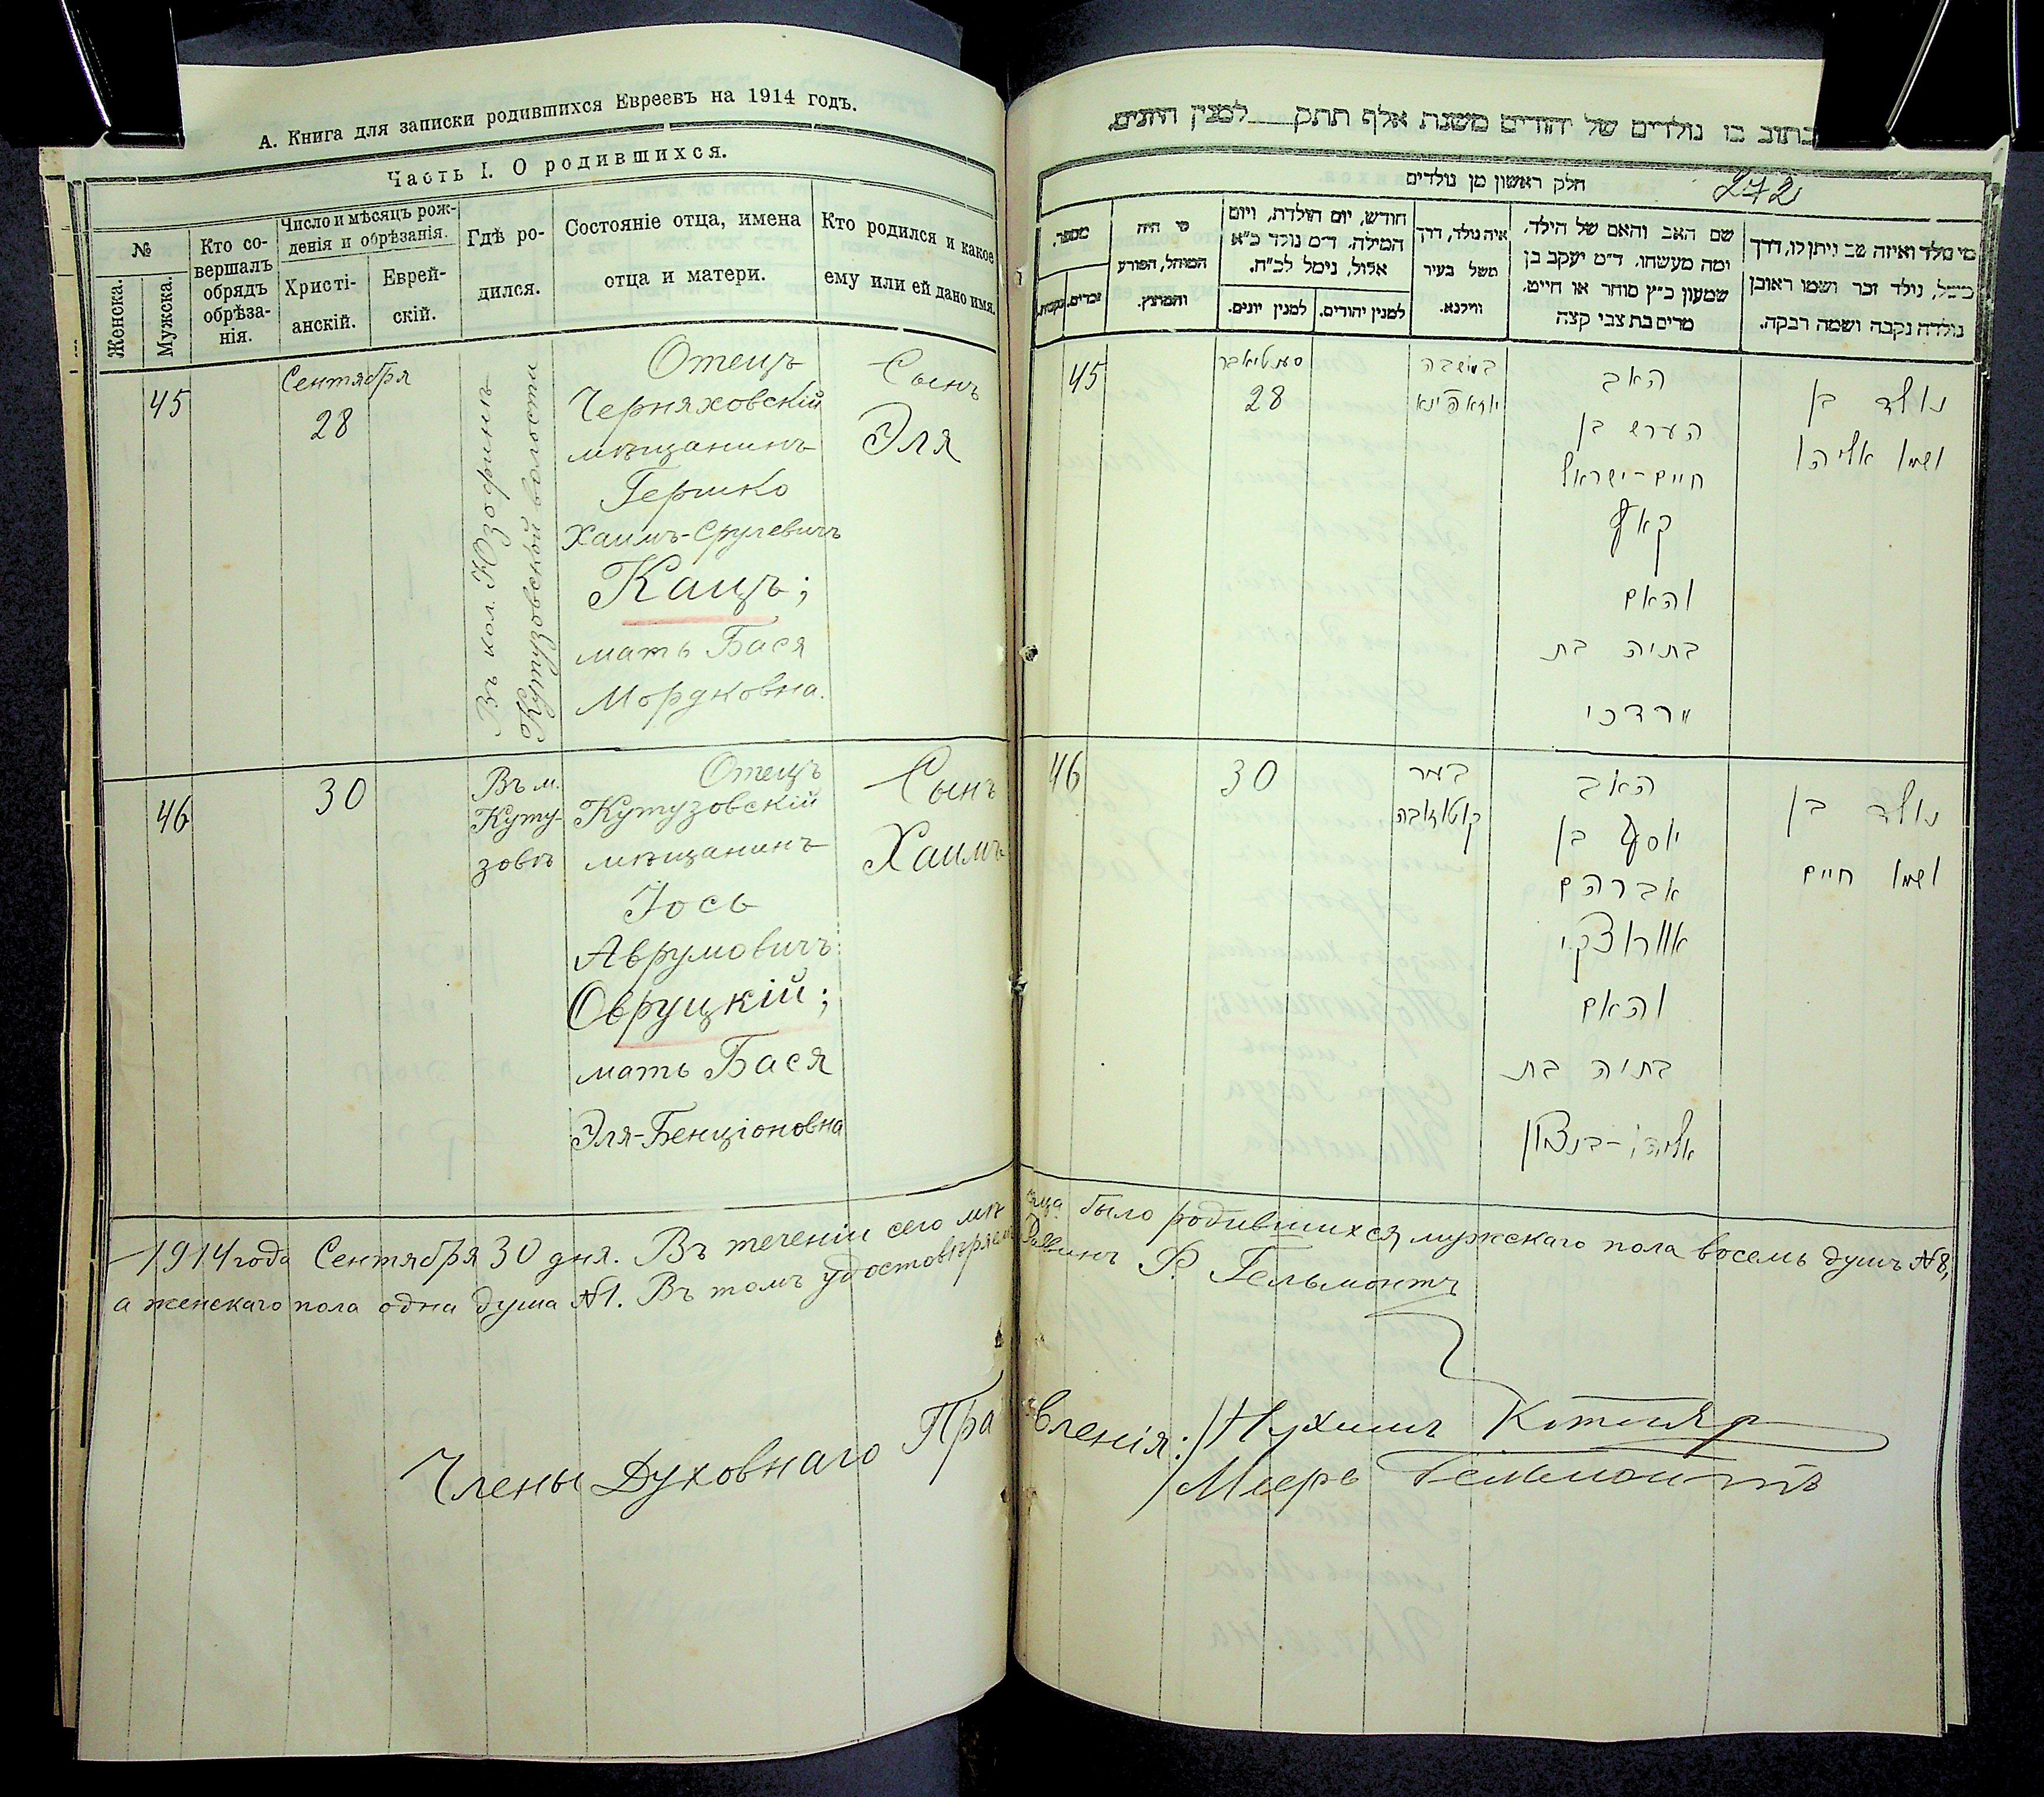 А. Книга для записки родившихся Евреевъ на 1914 годъ.
Часть I. О родившихся.
№
Женска.
Мужска.
Кто со-
вершалъ
обрядъ
обрѣза-
нія.
Число и мѣсяцъ рож-
денія и обрѣзанія.
Христі-
анскій.
Еврей-
скій.
Гдѣ ро-
дился.
Состояніе отца, имена
отца и матери.
Кто родился и какое
ему или ей дано имя.
45
Сентября
28
Въ кол. Юзофинъ
Кутузовской волости
Отецъ
Черняховскій
мѣщанинъ
Гершко
Хаимъ-Срулевичъ
Кацъ;
мать Бася
Мордковна.
Сынъ
Эля
46
30
Въ м.
Куту-
зовѣ
Отецъ
Кутузовскій
мѣщанинъ
Іось
Аврумовичъ
Овруцкій;
мать Бася
Эля-Бенціоновна
Сынъ
Хаимъ
בתוב בו נולדים של יהודים משנת אלף תתק למנין היונים.
272
חלק ראשון מן נולדים
מספר.
זכרים.
נקבות.
מי היה
המוהל, הפורע
והמוצץ.
חודש, יום הולדת, ויום
המילה. ד״מ נולד כ״א
אלול, נימל לכ״ח.
למנין יונים.
למנין יהודים.
איה נולד, דרך
משל בעיר
ווילנא.
שם האב והאם של הילד,
ומה מעשהו. ד״מ יעקב בן
שמעון כ״ץ סוחר או חייט.
מרים בת צבי קצה
מי נולד ואיזה שם ניתן לו, דרך
משל, נולד זכר ושמו ראובן
נולדה נקבה ושמה רבקה.
45
סעפטיאבר
28
במושבה
האב
הערש בן
חיים-ישראל
קאץ
והאם
בתיה בת
מרדכי
נולד בן
ושמו אליהו
46
30
קוטוזובה
האב
יוסף בן
אברהם
אוורוצקי
והאם
בתיה בת
אליהו-בנציון
נולד בן
ושמו חיים
1914 года Сентября 30 дня. Въ теченіи сего мѣсяца было родившихся мужскаго пола восемь душъ №8,
а женскаго пола одна душа №1. Въ томъ удостовѣряемъ Раввинъ Ф. Гельмонтъ
Члены Духовнаго Правленія: Нухимъ Котляр
Мееръ Гельмонтъ